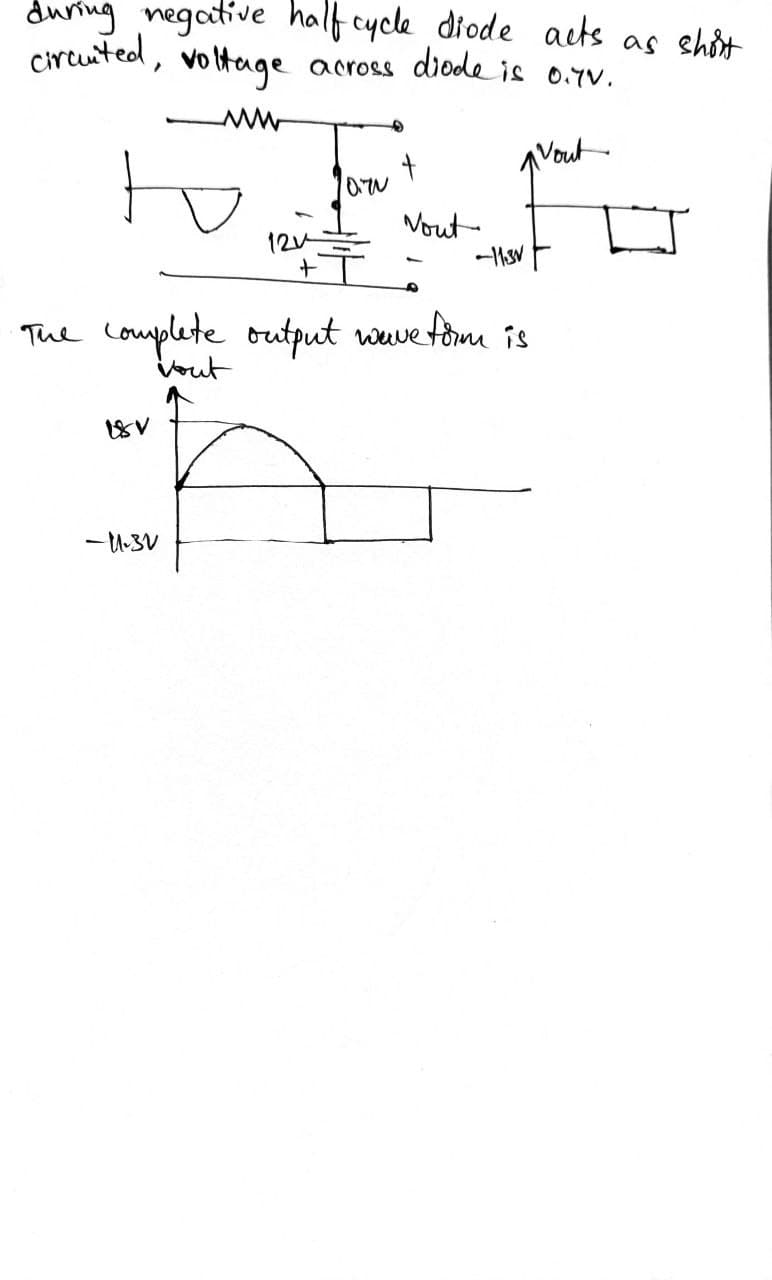 during negative half cycle diode acts as short
circuited, voltage across diode is 0.7V.
+
Vout
0.7V
-
12V
Vout
-11.3V
+
-
The complete output waveform is
Vout
18V
-11.3V